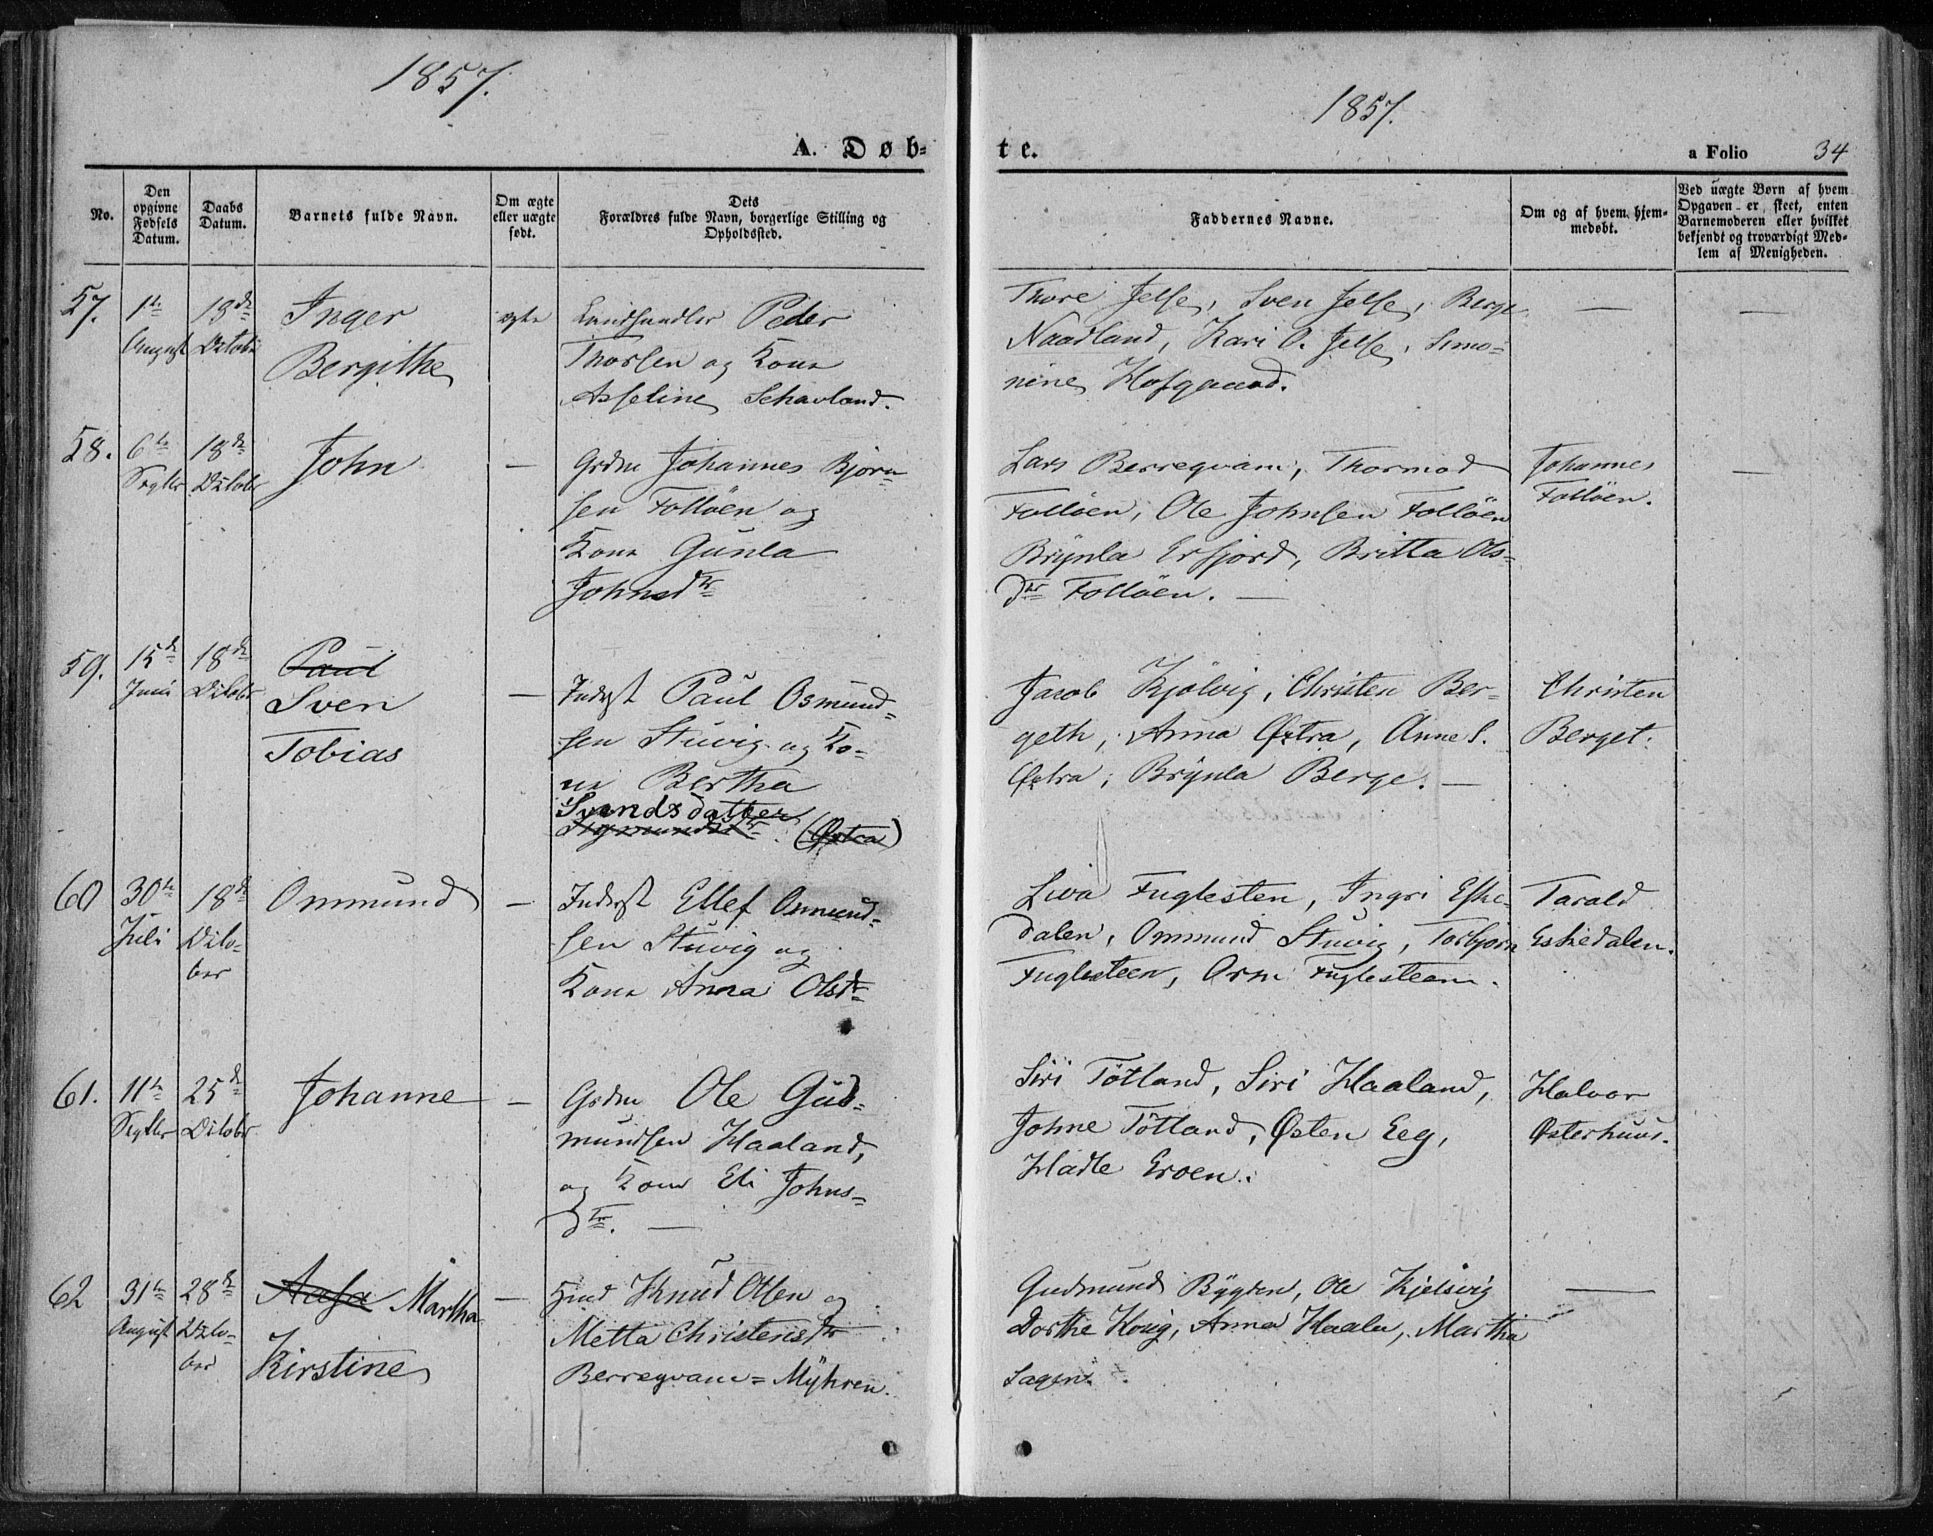 1857.
1857.
A. Døb-
te.
a Folio 34
No.
Den opgivne Fødsels Datum.
Daabs Datum.
Barnets fulde Navn.
Om ægte eller uægte født.
Dets Forældres fulde Navn, borgerlige Stilling og Opholdssted.
Faddernes Navne.
Om og af hvem hjem-
medøbt.
Ved uægte Børn af hvem
Opgaven er skeet, enten
Barnemoderen eller hvilket
bekjendt og troværdigt Med-
lem af Menigheden.
57.
1te
August
18de
October
Inger
Bergithe
ægte
Landhandler Peder
Thorsen og Kone
Asseline Schavland.
Thore Jelse, Sven Jelse, Berge
Naadland, Kari O. Jelse, Simo-
nine Hofgaard.
—
—
58.
6te
Septbr
18de
October
John
—
Grdm Johannes Bjørn-
sen Folløen og
Kone Gunla
Johnsdtr
Lars Berreqvam, Thormod
Folløen, Ole Johnsen Folløen
Brynla Erfjord, Britta Ols-
dtr Folløen. —
Johannes
Folløen.
—
59.
15de
Juni
18de
October
Paul
Sven
Tobias
—
Inderst Paul Osmund-
sen Stuvig og Ko-
ne Bertha
Svendsdatter
Sigmundsdtr. (Østra)
Jacob Kjølvig, Christen Ber-
geth, Anna Østra, Anne S.
Østra, Brynla Berge. —
Christen
Berget.
60
30te
Juli
18de
Octo-
ber
Ommund
—
Inderst Ellef Ommund-
sen Stuvig og
Kone Anna Olsdtr
Liva Fuglesten, Ingri Eske-
dalen, Ommund Stuvig, Torbjørn
Fuglesteen, Orm Fuglesteen.
Tarald
Eskedalen.
61.
11te
Septbr
25de
October
Johanne
—
Grdm Ole Gud-
mundsen Haaland,
og Kone Eli Johns-
dtr. —
Siri Tøtland, Siri Haaland,
Johne Tøtland, Østen Eeg,
Hadle Eroen.
Halvor
Østerhuus.
62
31te
August
28de
Octo-
ber
Aasa Martha
Kirstine
—
Knud Olsen og
Metta Christensdtr
Berreqvam = Myhren.
Gudmund Bygden, Ole Kjølvig
Dorthe Høig, Anna Haala, Martha
Sagen.
—